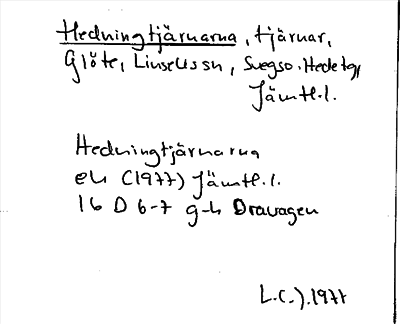 Hedningtjärnarna, tjärnar,
Glöte, Linsells sn, Svegs o. Hede tg,
Jämtl. l.
Hedningtjärnarna
ek (1977) Jämtl. l.
16 D 6-7 g-h Dravagen
L.C-). 1977